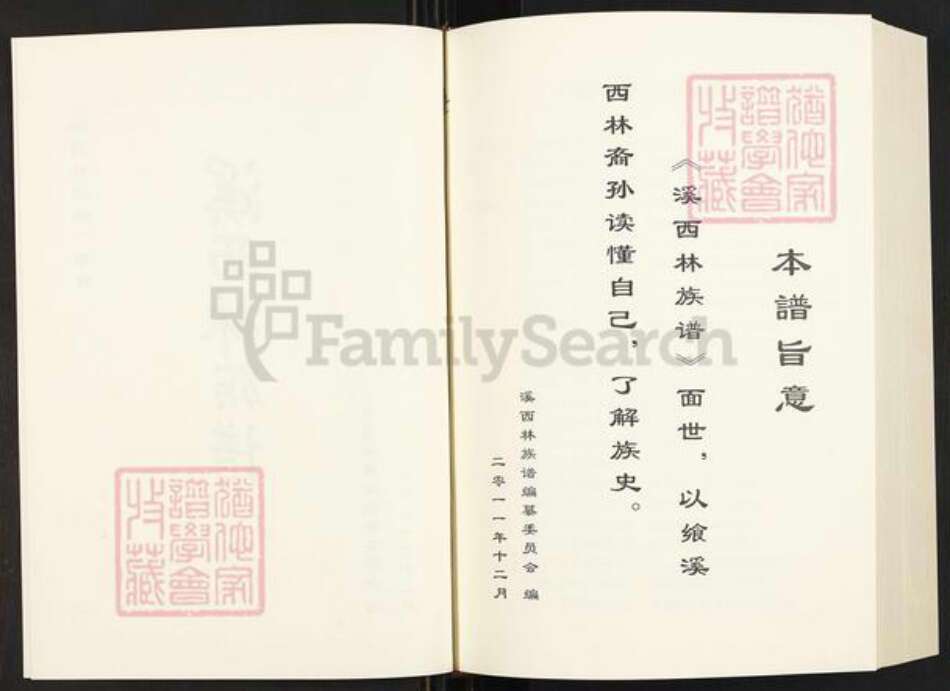 本譜旨意
《溪西林族谱》面世，以飨溪
西林裔孙读懂自己，了解族史。
溪西林族谱编纂委员会 编
二零一一年十二月
猶他家
譜學會
收藏
FamilySearch
猶他家
譜學會
收藏